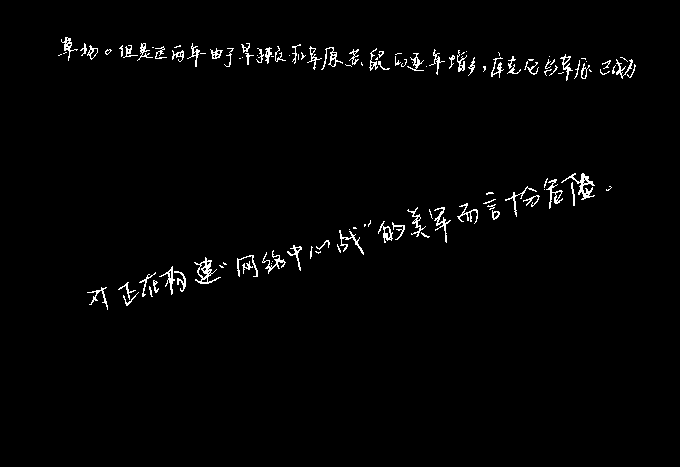 草场。但是近两年由于旱獭和草原黄鼠的逐年增多,库克尼台草原已成为
对正在构建“网络中心战”的美军而言十分危险。